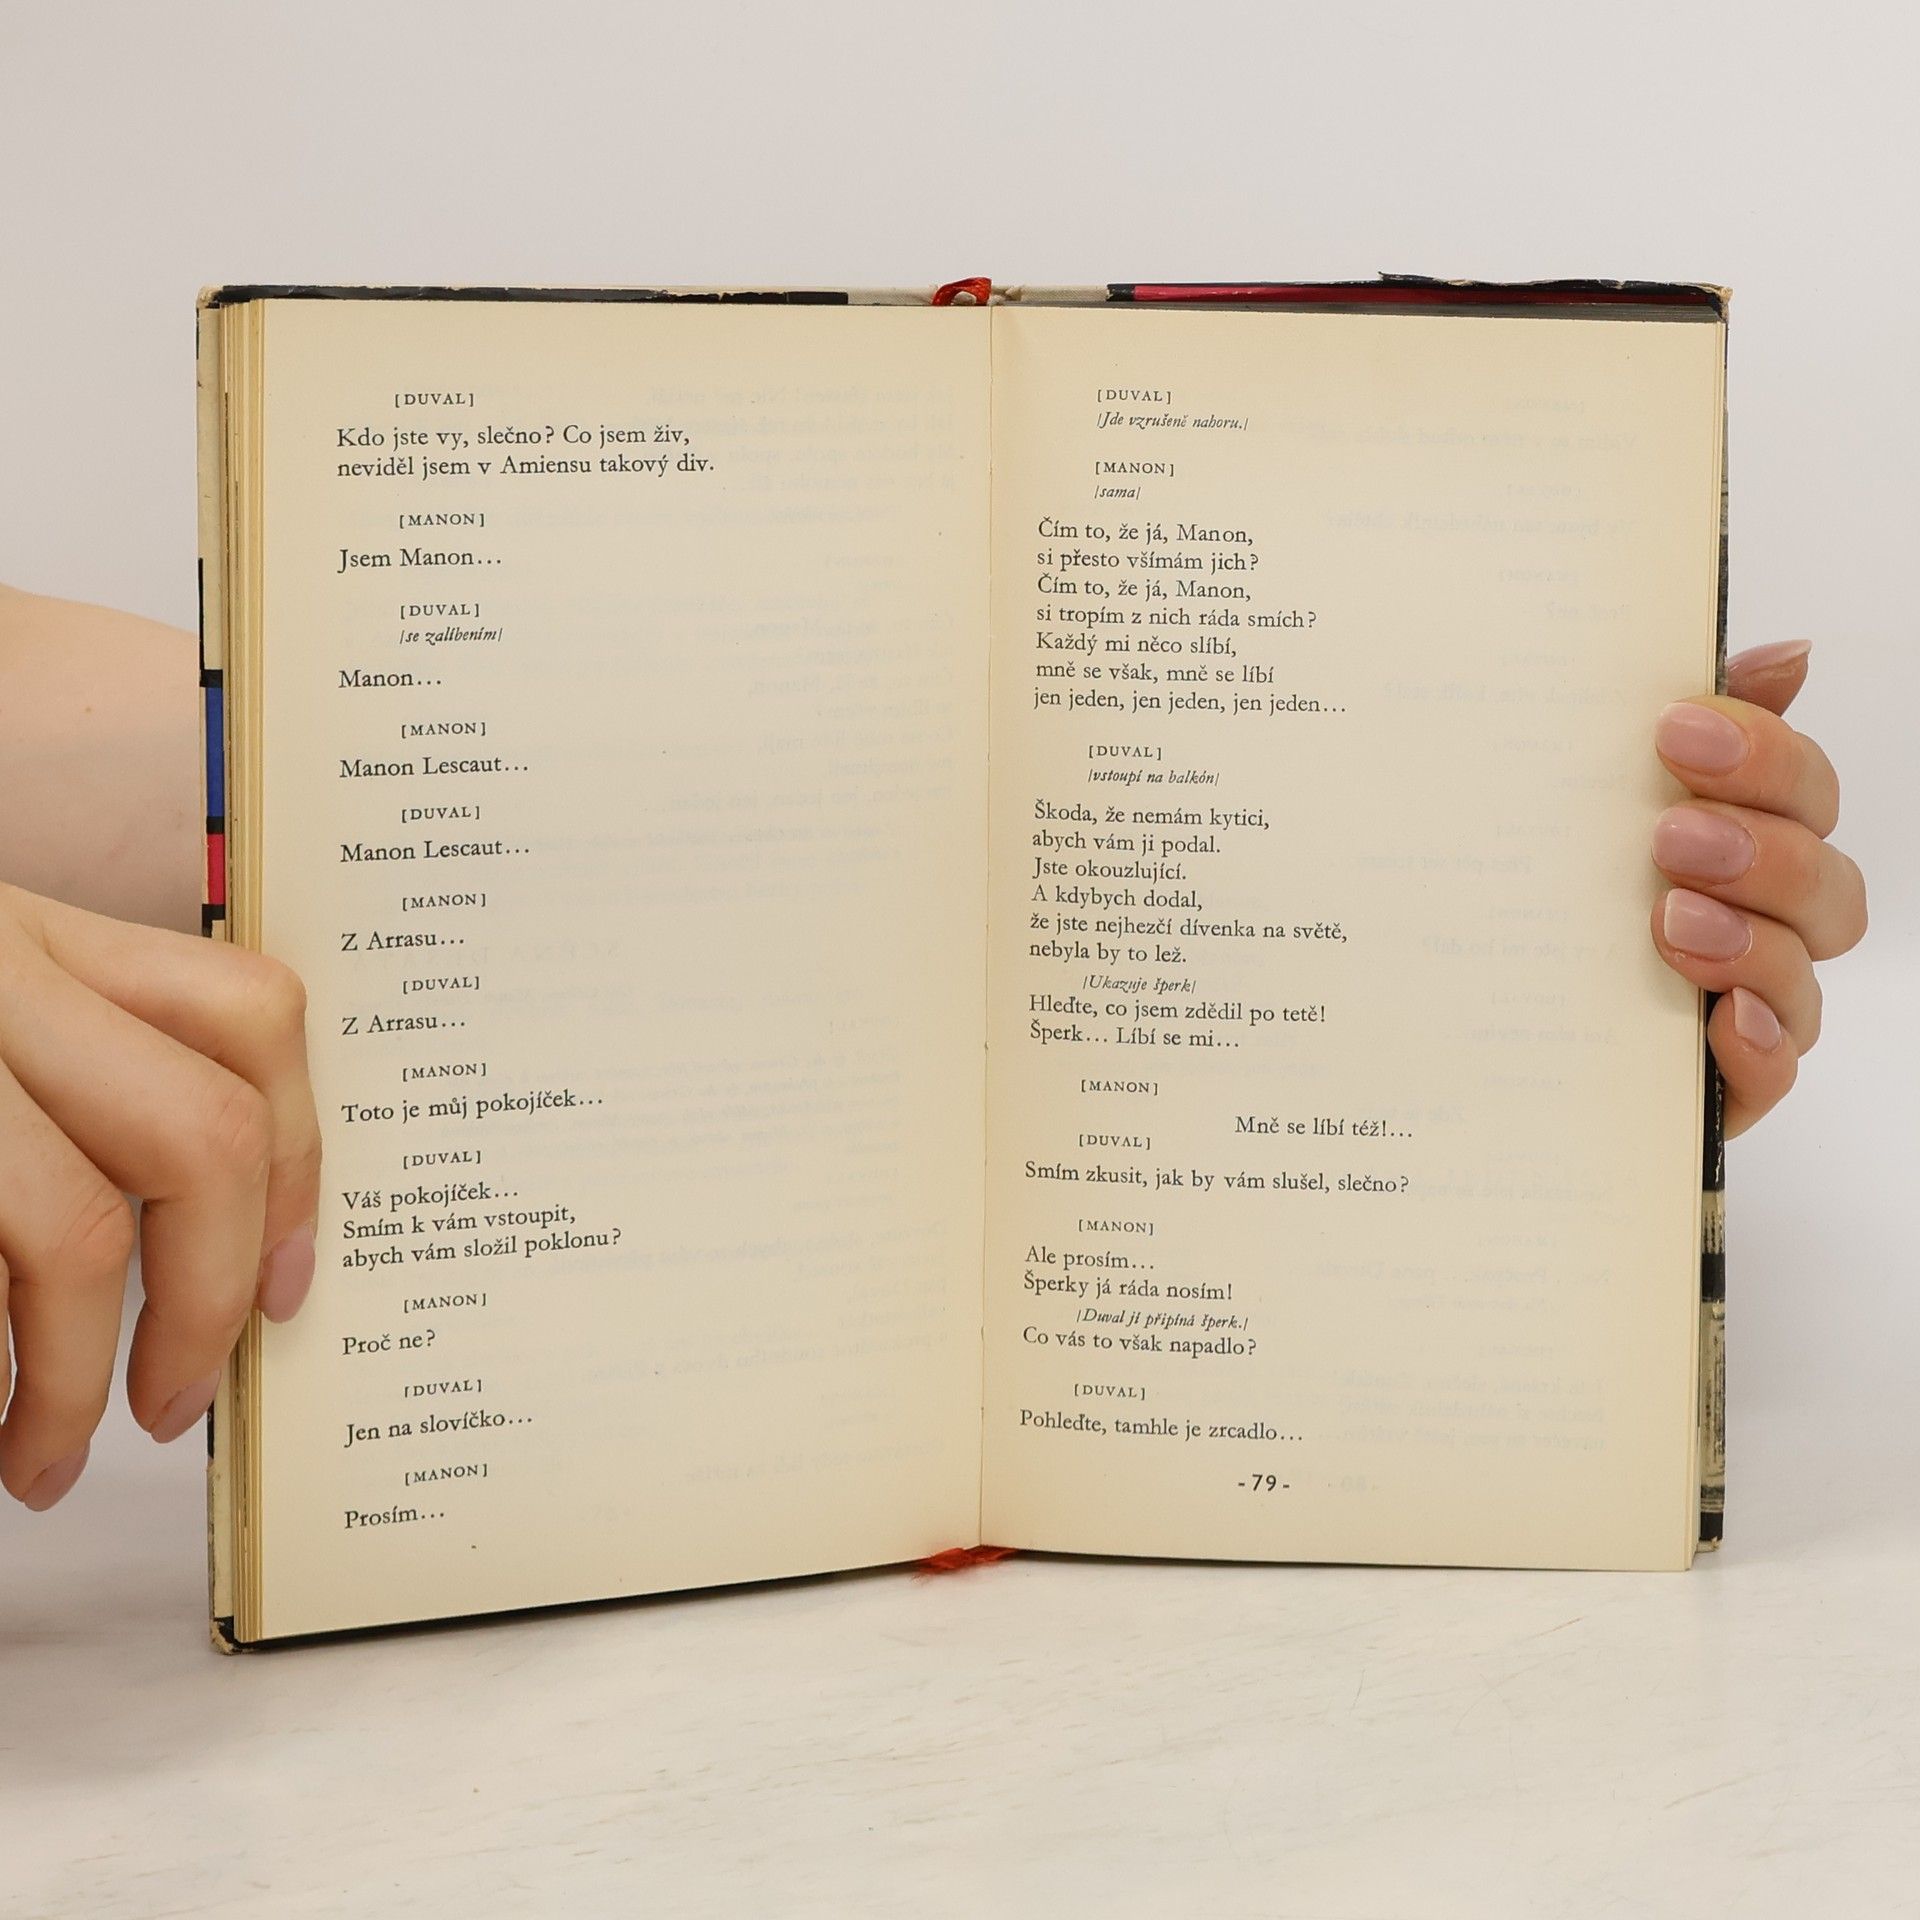 [DUVAL]
Kdo jste vy, slečno? Co jsem živ,
neviděl jsem v Amiensu takový div.
[MANON]
Jsem Manon...
[DUVAL]
|se zalíbením|
Manon...
[MANON]
Manon Lescaut...
[DUVAL]
Manon Lescaut...
[MANON]
Z Arrasu...
[DUVAL]
Z Arrasu...
[MANON]
Toto je můj pokojíček...
[DUVAL]
Váš pokojíček...
Smím k vám vstoupit,
abych vám složil poklonu?
[MANON]
Proč ne?
[DUVAL]
Jen na slovíčko...
[MANON]
Prosím...
[DUVAL]
|Jde vzrušeně nahoru.|
[MANON]
|sama|
Čím to, že já, Manon,
si přesto všímám jich?
Čím to, že já, Manon,
si tropím z nich ráda smích?
Každý mi něco slíbí,
mně se však, mně se líbí
jen jeden, jen jeden, jen jeden...
[DUVAL]
|vstoupí na balkón|
Škoda, že nemám kytici,
abych vám ji podal.
Jste okouzlující.
A kdybych dodal,
že jste nejhezčí dívenka na světě,
nebyla by to lež.
|Ukazuje šperk|
Hleďte, co jsem zdědil po tetě!
Šperk... Líbí se mi...
[MANON]
Mně se líbí též!...
[DUVAL]
Smím zkusit, jak by vám slušel, slečno?
[MANON]
Ale prosím...
Šperky já ráda nosím!
|Duval jí připíná šperk.|
Co vás to však napadlo?
[DUVAL]
Pohleďte, tamhle je zrcadlo...
- 79 -